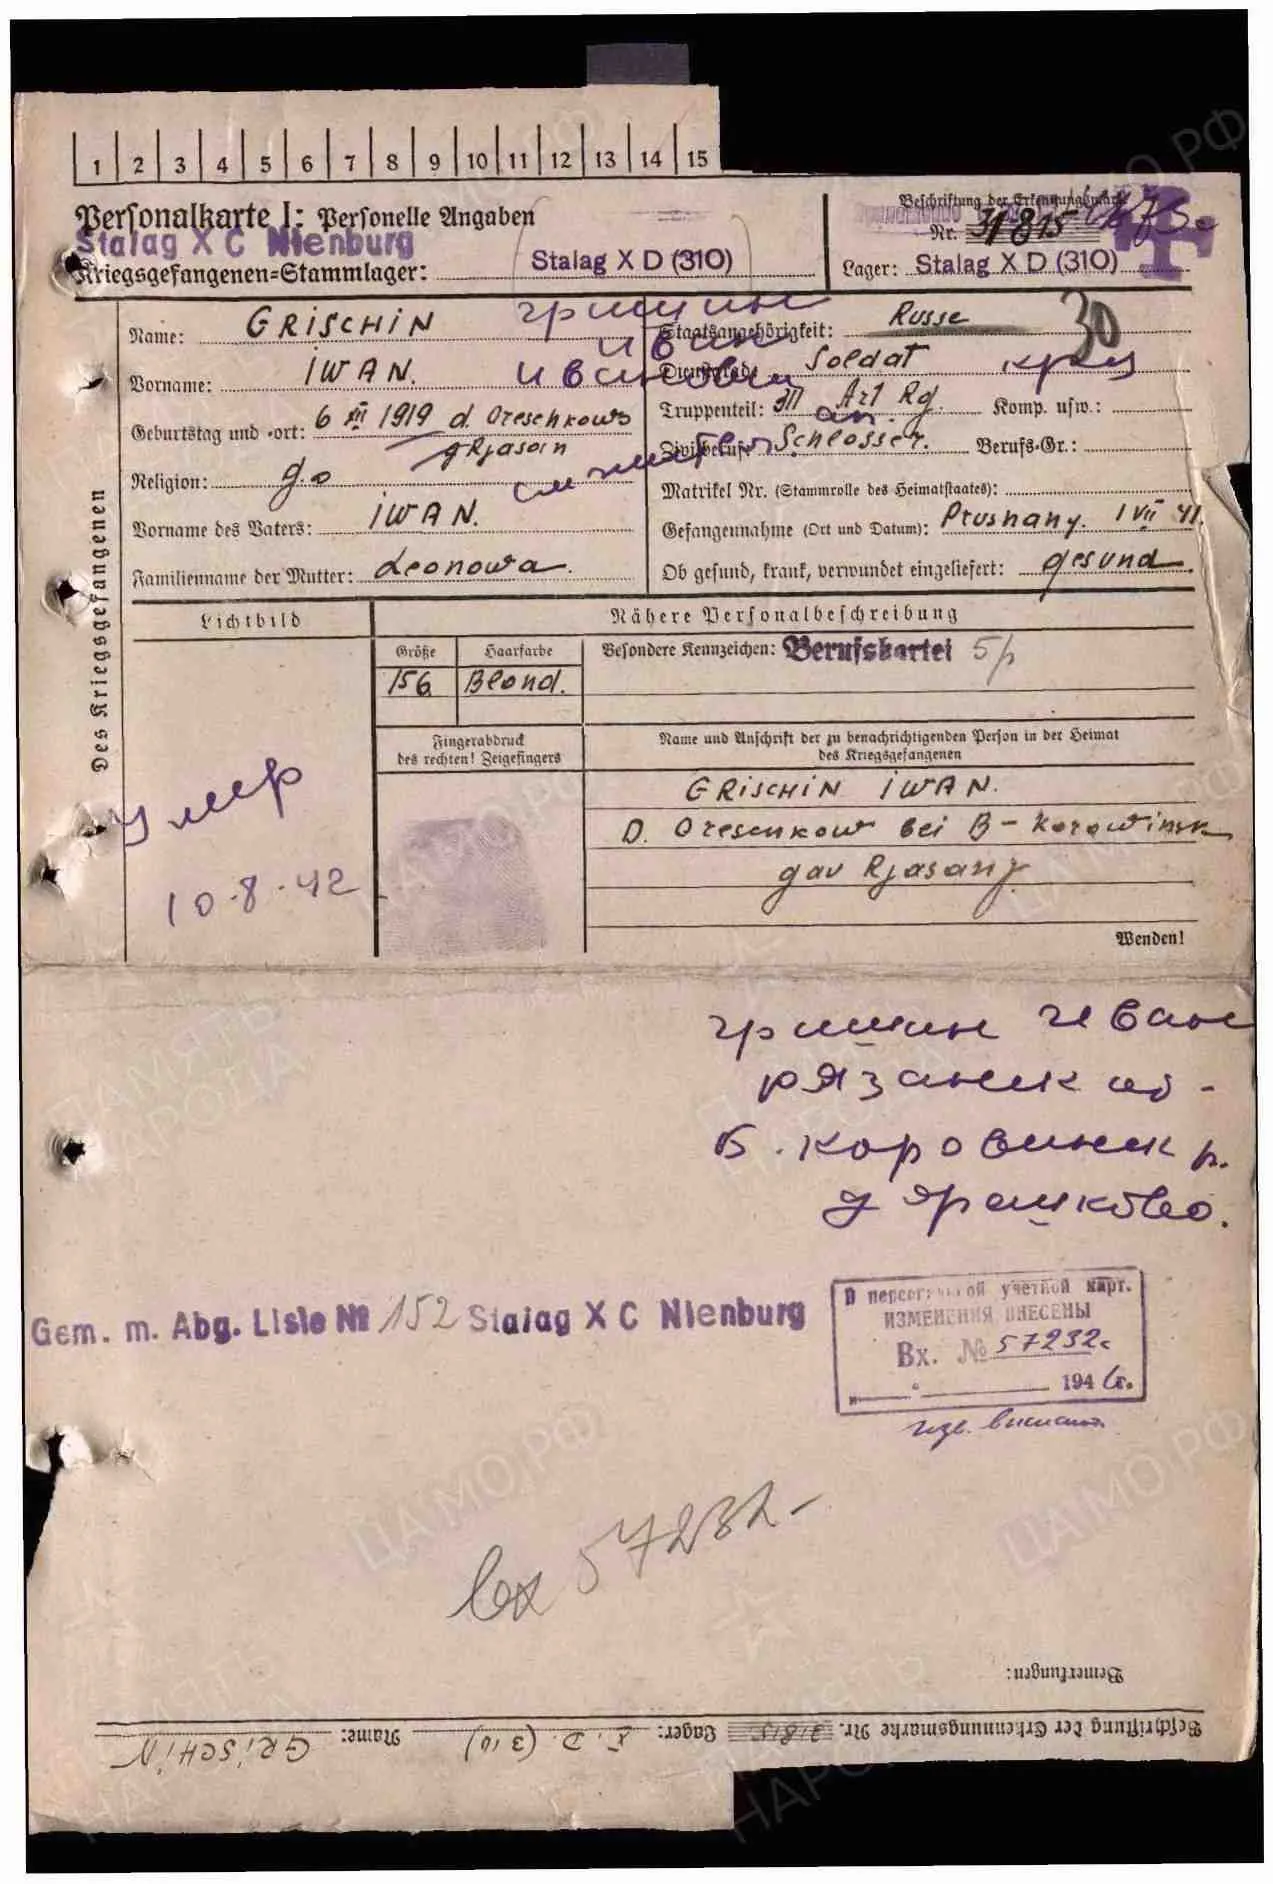 1 2 3 4 5 6 7 8 9 10 11 12 13 14 15
Personalkarte I: Personelle Angaben
Stalag X C Nienburg
Kriegsgefangenen=Stammlager: Stalag X D (310)
Beschriftung der Erkennungsmarke
Nr. 31815
Lager: Stalag X D (310)
Des Kriegsgefangenen
Name: GRISCHIN
гришин
Staatsangehörigkeit: Russe
30
иван
Vorname: IWAN.
иванович
Dienstgrad: Soldat
Geburtstag und =ort: 6 XII 1919 d. Oreschkowo
gRjasan
Truppenteil: Art Rg. Komp. usw.:
Zivilberuf: Schlosser. Berufs-Gr.:
Religion: g.o
Matrikel Nr. (Stammrolle des Heimatstaates):
Vorname des Vaters: IWAN.
Gefangennahme (Ort und Datum): Prushany. 1 VII 41.
Familienname der Mutter: Leonowa.
Ob gesund, krank, verwundet eingeliefert: gesund.
Lichtbild
Nähere Personalbeschreibung
Größe Haarfarbe
Besondere Kennzeichen: Berufskartei
156 Blond.
Fingerabdruck
des rechten! Zeigefingers
Name und Anschrift der zu benachrichtigenden Person in der Heimat
des Kriegsgefangenen
умер
10-8-42
GRISCHIN IWAN.
D. Oresenkow bei B-Korowinsk
gav Rjasanj
Wenden!
гришин иван
рязанск об-
Б. коровинск р.
д ярешково.
Gem. m. Abg. Liste № 152 Stalag X C Nienburg
В персональной учетной карт.
ИЗМЕНЕНИЯ ВНЕСЕНЫ
Вх. № 57232с
194 г.
вх 57232-
Bemerkungen:
Beschriftung der Erkennungsmarke Nr. 31815 Lager: X. D. (310) Name: GRISCHIN
ЦАМО.РФ
ПАМЯТЬ
НАРОДА